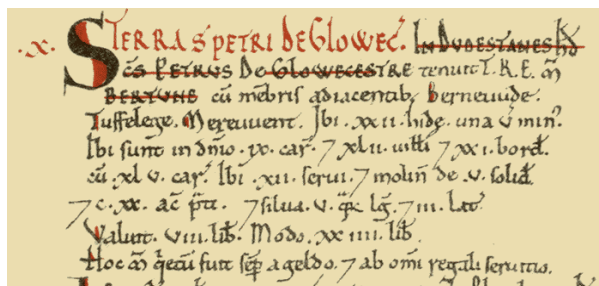 .X. TERRA S PETRI DE GLOWEC̄. IN DVDESTANES H̄D
SC̄S PETRVS DE GLOWECESTRE tenuit T.R.E. m̄
BERTVNE cū mēbris adiacentib; Berneuude.
Tuffelege. Mereuuent. Ibi .xxii. hidę. una v̄ min⁹.
Ibi sunt in dn̄io .ix. car̄. ⁊ xlii. uiłłi ⁊ xxi. bord̄.
cū .xlv. car̄. Ibi .xii. serui. ⁊ molin̄ de .v. solid̄.
⁊ c.xx. ac̄ p̄ti. ⁊ silua .v. q̄ꝝ lḡ. ⁊ iii. lat̄.
Valuit. viii. lib̄. Modo. xxiiii. lib̄.
Hoc m̄ q̄etū fuit sēp a geldo. ⁊ ab om̄i regali seruitio.